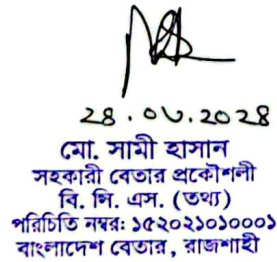 ২৪.০৬.২০২৪
মো. সামী হাসান
সহকারী বেতার প্রকৌশলী
বি. সি. এস. (তথ্য)
পরিচিতি নম্বর: ১৫২০২১০১০০০১
বাংলাদেশ বেতার, রাজশাহী